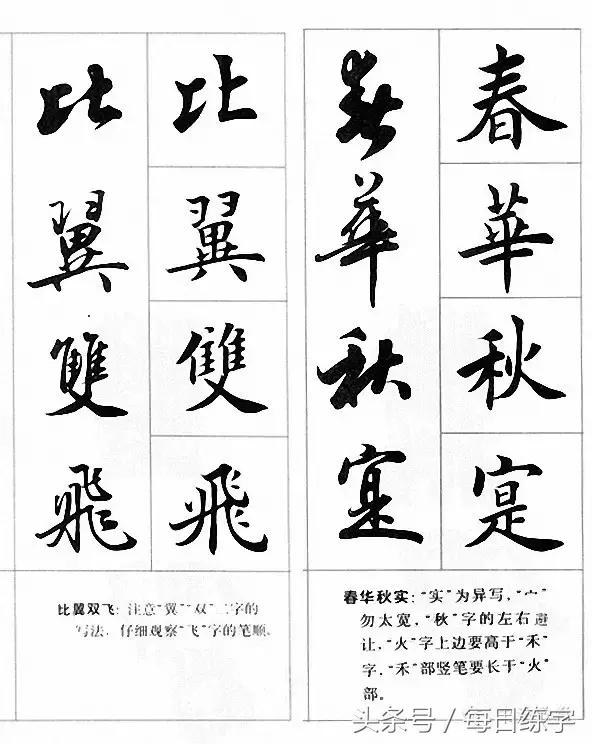 春華秋寔
春華秋寔
春华秋实:“实”为异写,“宀”
勿太宽,“秋”字的左右避
让,“火”字上边要高于“禾”
字,“禾”部竖笔要长于“火”
部。
比翼雙飛
比翼雙飛
比翼双飞:注意“翼”“双”二字的
写法,仔细观察“飞”字的笔顺。
头条号 / 每日练字